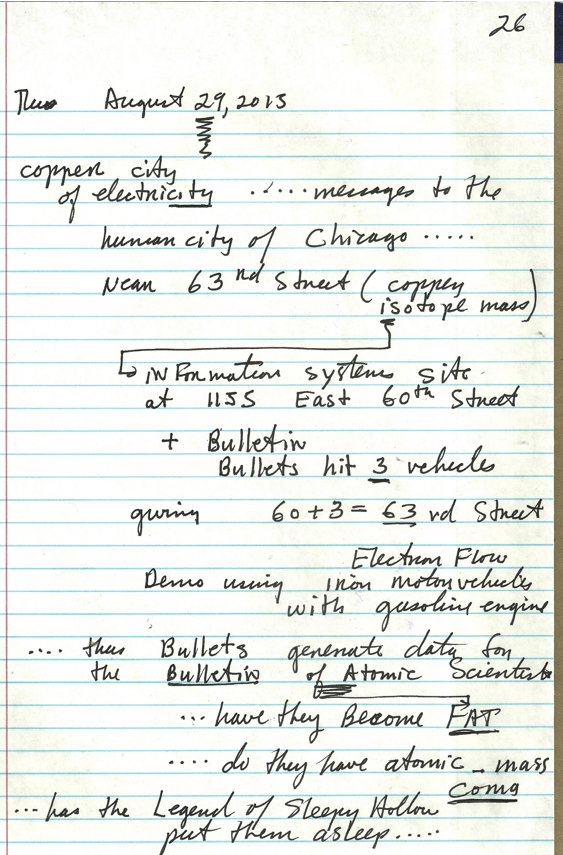 26
Thus August 29, 2013
copper city
of electricity ..... messages to the
human city of Chicago .....
Near 63nd Street (copper
isotope mass)
information systems site
at 1155 East 60th Street
+ Bulletin
Bullets hit 3 vehicles
giving 60+3 = 63 rd Street
Electron Flow
Demo using iron motor vehicles
with gasoline engine
.... thus Bullets generate data for
the Bulletin of Atomic Scientists
... have they Become FAT
.... do they have atomic - mass
coma
... has the Legend of Sleepy Hollow
put them asleep .....